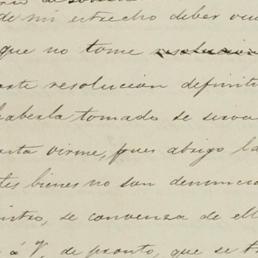 de mi estrecho deber
que no tome resolucion
este resolución definit
haberla tomado se serva
pues abrigo la
tes bienes no son denuncia
intro, se convenza de ell
a V. de pronto, que se t